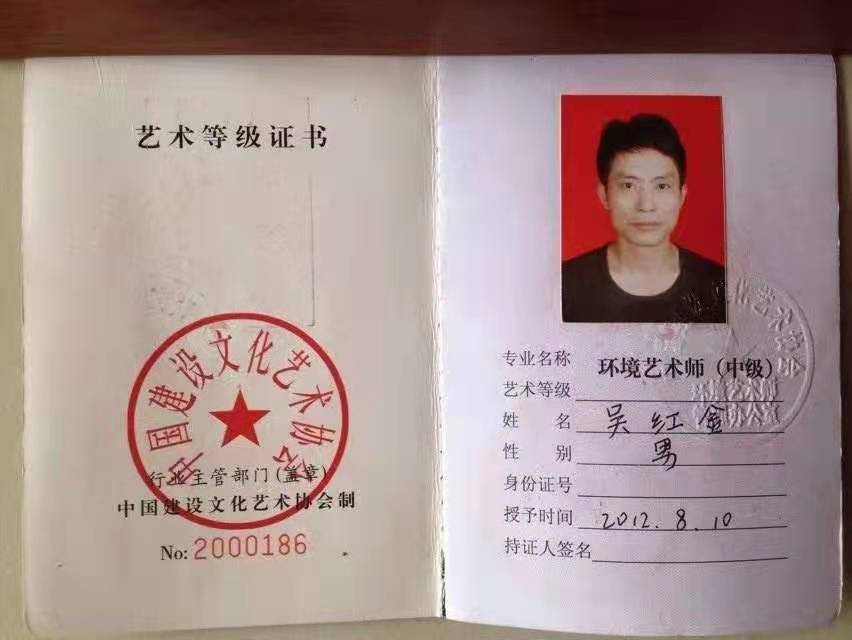 艺术等级证书
中国建设文化艺术协会
行业主管部门(盖章)
中国建设文化艺术协会制
No: 2000186
专业名称 环境艺术师（中级）
艺术等级
姓 名 吴红金
性 别 男
身份证号
授予时间 2012.8.10
持证人签名